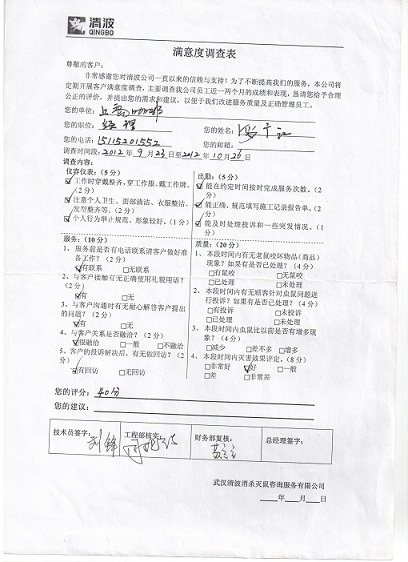 清波
QINGBO
满意度调查表
尊敬的客户：
非常感谢您对清波公司一直以来的信赖与支持！为了不断提高我们的服务，本公司将
定期开展客户满意度调查，主要调查我公司员工近一两个月的成绩和表现，恳请您给予合理
公正的评价，并提出您的需求和建议，以便于我们改进服务质量及正确管理员工。
您的单位：
您的职位：经理 您的姓名：
您的电话：15115201552 您的邮箱：
调查时间段：2012年9月23日至2012年10月25日
调查内容：
仪容仪表：（5分） 出勤：（5分）
☑工作时穿戴整齐，穿工作服、戴工作牌。（2分） ☑能在约定时间按时完成服务次数。（2分）
☑注意个人卫生、面部清洁、衣服整洁、发型整齐等。（2分） ☑能正确、规范填写施工记录报告单。（2分）
☑个人行为举止规范、形象较好。（1分） ☑能及时处理投诉和一些突发情况。（1分）
服务：（10分） 质量：（20分）
1、服务前是否有电话联系请客户做好准备工作？（2分）
☑有联系 □无联系
2、与客户接触有无正确使用礼貌用语？（2分）
☑有 □无
3、与客户沟通时有无耐心解答客户提出的问题？（2分）
☑有 □无
4、与客户关系是否融洽？（2分）
☑很融洽 □一般 □不融洽
5、客户的投诉解决后，有无做回访？（2分）
☑有回访 □无回访
1、本段时间内有无老鼠咬坏物品（商品）现象？如果有是否已处理？（4分）
□有鼠咬 □无鼠咬
□已处理 □未处理
2、本段时间内有无顾客针对虫鼠问题进行投诉？如果有是否已处理？（4分）
□有投诉 □未投诉
□已处理 □未处理
3、本段时间内虫鼠比以前是否有增多现象？（4分）
□减少 □差不多 □增多
4、本段时间内灭害效果评定。（8分）
□非常好 ☑好 □一般
□差 □非常差
您的评分：40分
您的建议：
技术员签字：刘锋 工程部核实： 财务部复核： 总经理签字：
武汉清波消杀灭鼠咨询服务有限公司
年 月 日